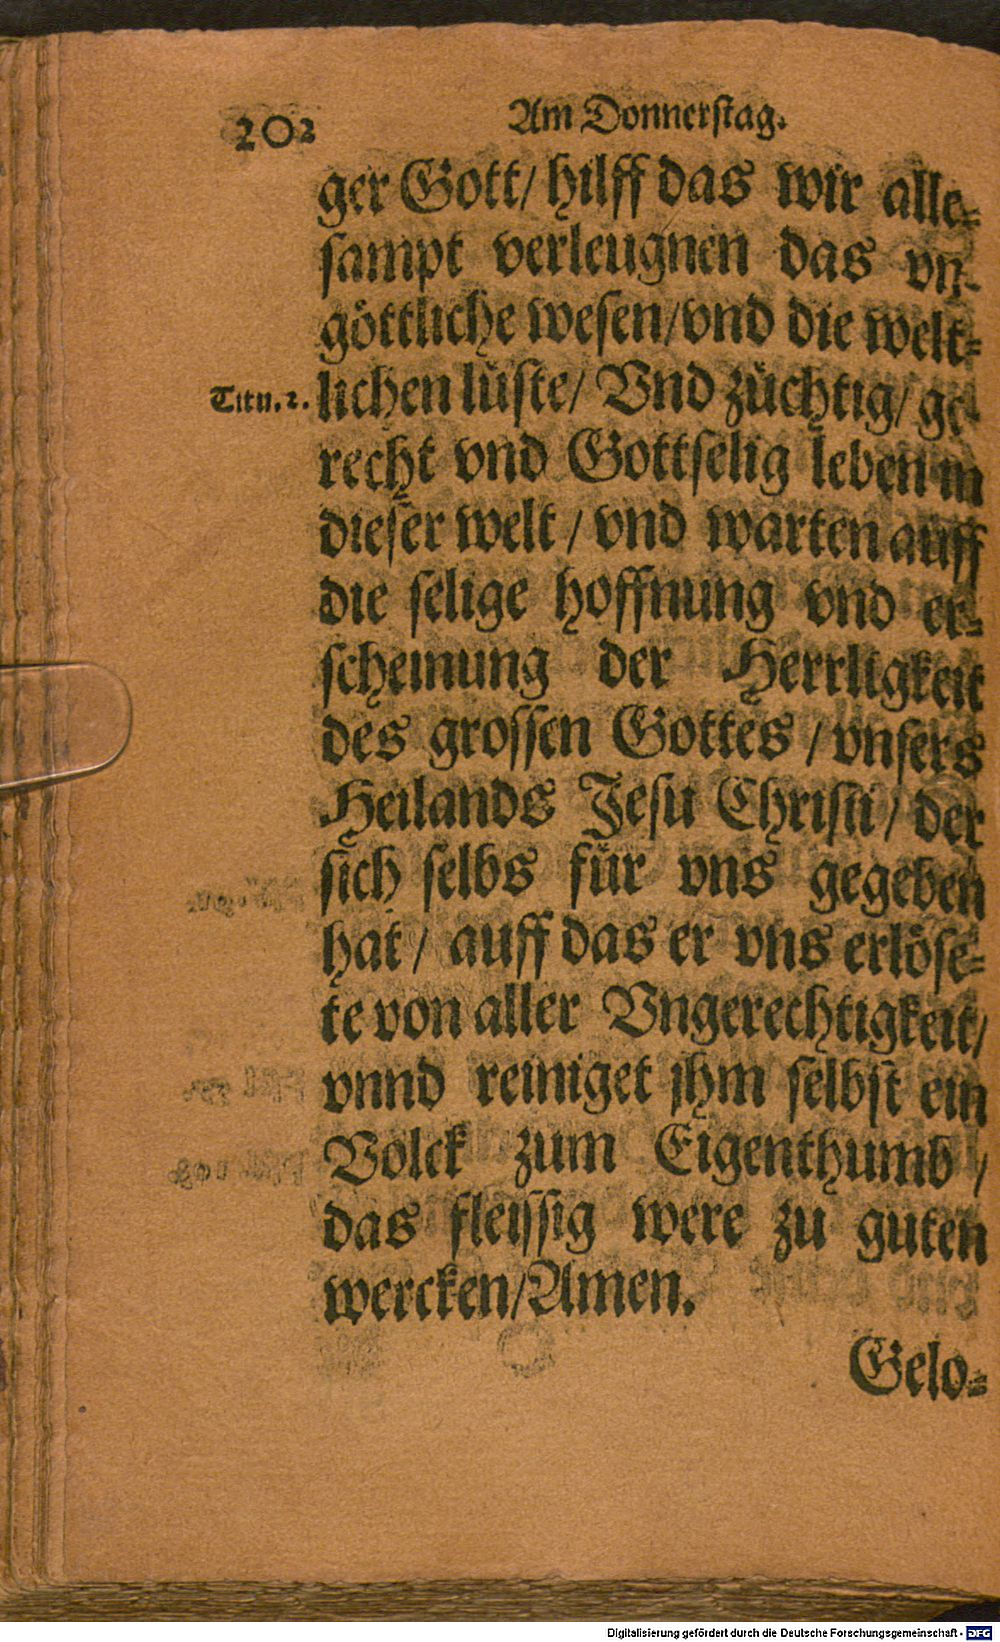 202 Am Donnerstag.
ger Gott/ hilff das wir alle-
sampt verleugnen das vn-
göttliche wesen/vnd die welt-
Titu. 2. lichen lüste/ Vnd züchtig/ ge-
recht vnd Gottselig leben in
dieser welt / vnd warten auff
die selige hoffnung vnd er-
scheinung der Herrligkeit
des grossen Gottes / vnsers
Heilands Jesu Christi / der
sich selbs für vns gegeben
hat / auff das er vns erlöse-
te von aller Vngerechtigkeit/
vnnd reiniget jhm selbst ein
Volck zum Eigenthumb /
das fleissig were zu guten
wercken/Amen.
Gelo-
Digitalisierung gefördert durch die Deutsche Forschungsgemeinschaft - DFG